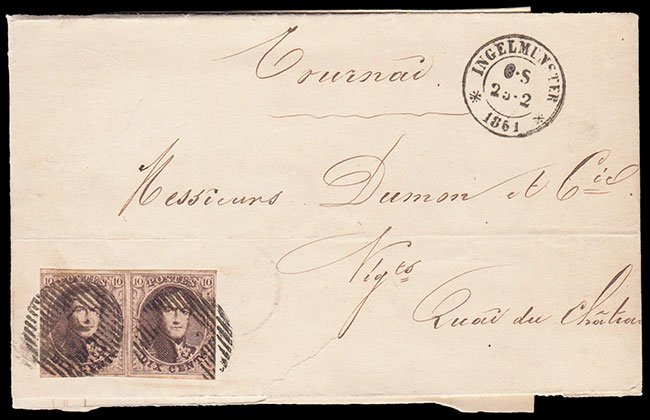 Tournai.
INGELMUNSTER
6·S
2-2
1861
Messieurs Dumon et Cie
Nigts
Quai du Châtea
10 POSTES 10
10 POSTES 10
DIX CENT